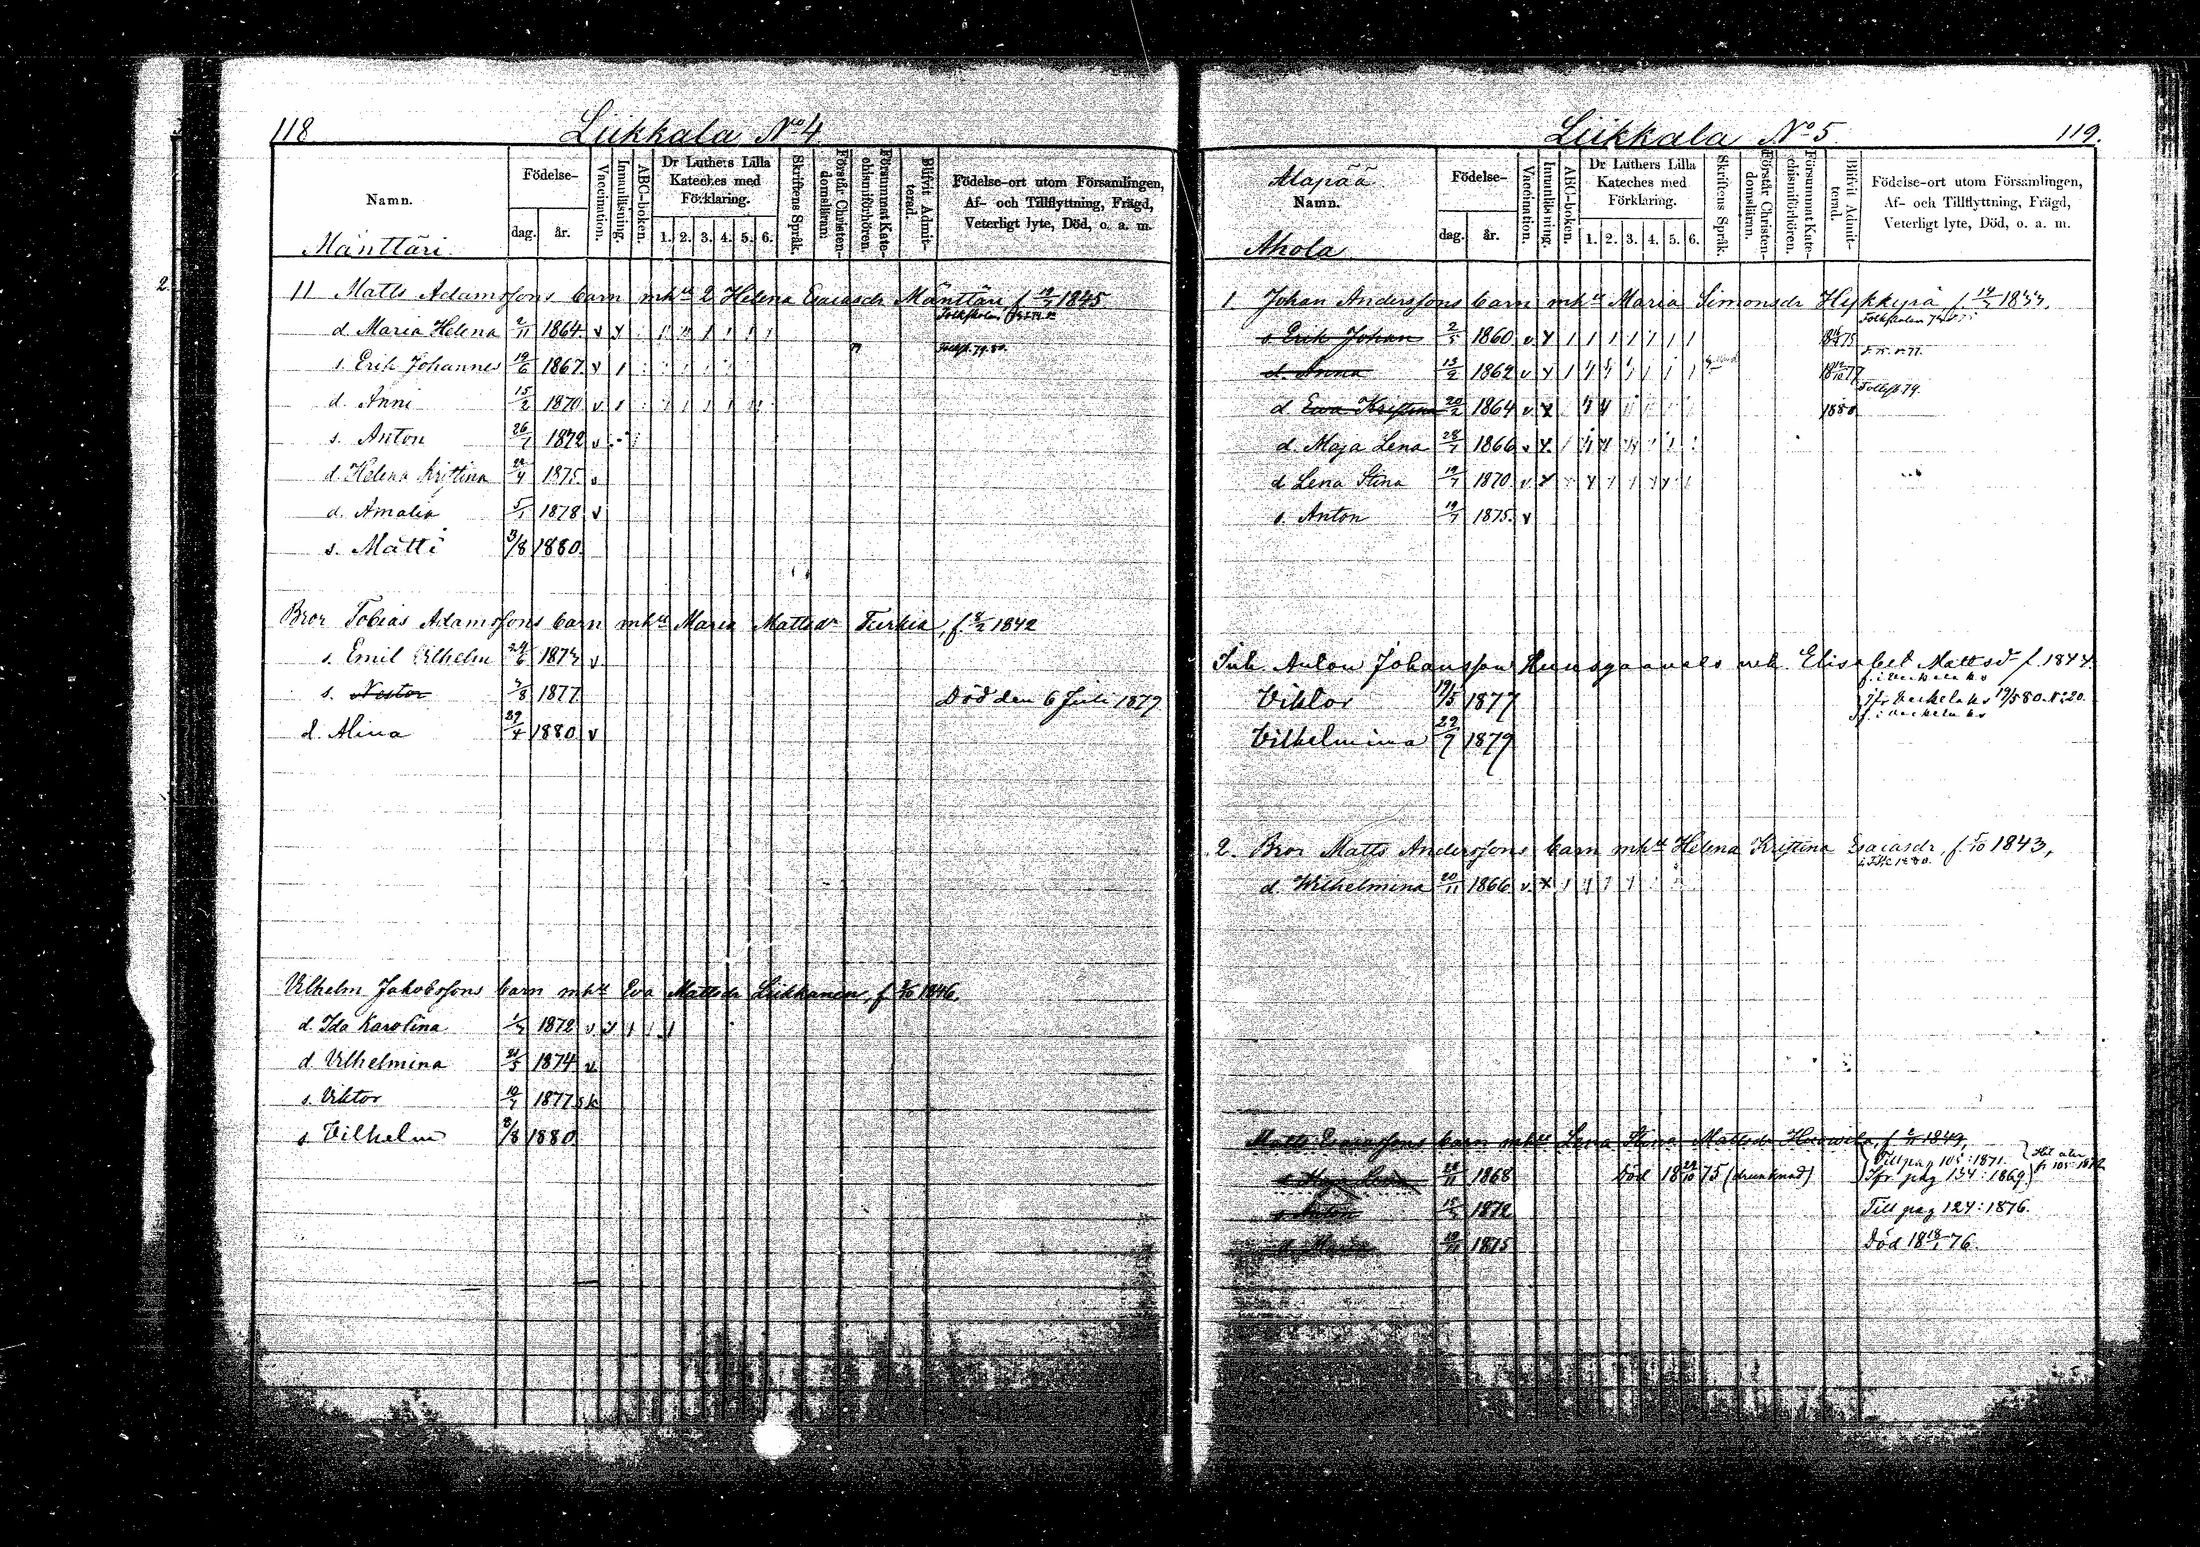 118.
Liikkala No 4
Namn.
Födelse-
dag.
år.
Vaccination.
Innanläsning.
ABC-boken.
Dr Luthers Lilla
Kateches med
Förklaring.
1. 2. 3. 4. 5. 6.
Skriftens Språk.
Förstår Christen-
domsläran.
Försummat Kate-
chismiförhören.
Blifvit Admit-
terad.
Födelse-ort utom Församlingen,
Af- och Tillflyttning, Frägd,
Veterligt lyte, Död, o. a. m.
Mänttäri
11 Matts Adamssons barn mhu 2 Helena Esaiasdr Mänttäri f 1845
d. Maria Helena 2/11 1864
s. Erik Johannes 19/6 1867
d. Anni 15/2 1870
s. Anton 26/1 1872
d. Helena Kristina 1875
d. Amalia 5/1 1878
s. Matti 3/8 1880
Bror Tobias Adamssons barn mhu Maria Mattsdr Turkia, f 1842
s. Emil Vilhelm 1873
s. Nestor 1877 Död den 6 Juli 1879
d. Alina 29/4 1880
Vilhelm Jakobssons barn mhu Eva Mattsdr Liikkanen, f 1846.
d. Ida Karolina 1872
d. Vilhelmina 21/5 1874
s. Viktor 10/7 1877
s Vilhelm 1880
Liikkala No 5.
119.
Alapää
Namn.
Ahola
Födelse-
dag.
år.
Vaccination.
Innanläsning.
ABC-boken.
Dr Luthers Lilla
Kateches med
Förklaring.
1. 2. 3. 4. 5. 6.
Skriftens Språk.
Förstår Christen-
domsläran.
Försummat Kate-
chismiförhören.
Blifvit Admit-
terad.
Födelse-ort utom Församlingen,
Af- och Tillflyttning, Frägd,
Veterligt lyte, Död, o. a. m.
1. Johan Anderssons barn mhu Maria Simonsdr Hykkyrä f
s Erik Johan 1860
d. Anna 13/2 1862
d Ewa Kristina 20/2 1864 1880
Folksk 79.
d. Maja Lena 28/7 1866
d Lena Stina 19/7 1870
s. Anton 19/7 1875
Inh. Anton Johansson Elisabet Mattsdr f. 1844.
Viktor 19/5 1877
Vilhelmina 22/7 1879
2. Bror Matts Anderssons barn mhu Helena Kristina Esaiasdr, f. 1843,
d. Wilhelmina 20/11 1866
Matts Esaiassons barn mhu Lena Stina Mattsdr f 1849,
1868 Död 18 29/10 75 (drunknad)
Till pag 105: 1871.
Ifr. pag 134: 1869
s. Anton 1872 Till pag 124: 1876.
d. Maria 1875 Död 18 18/1 76.